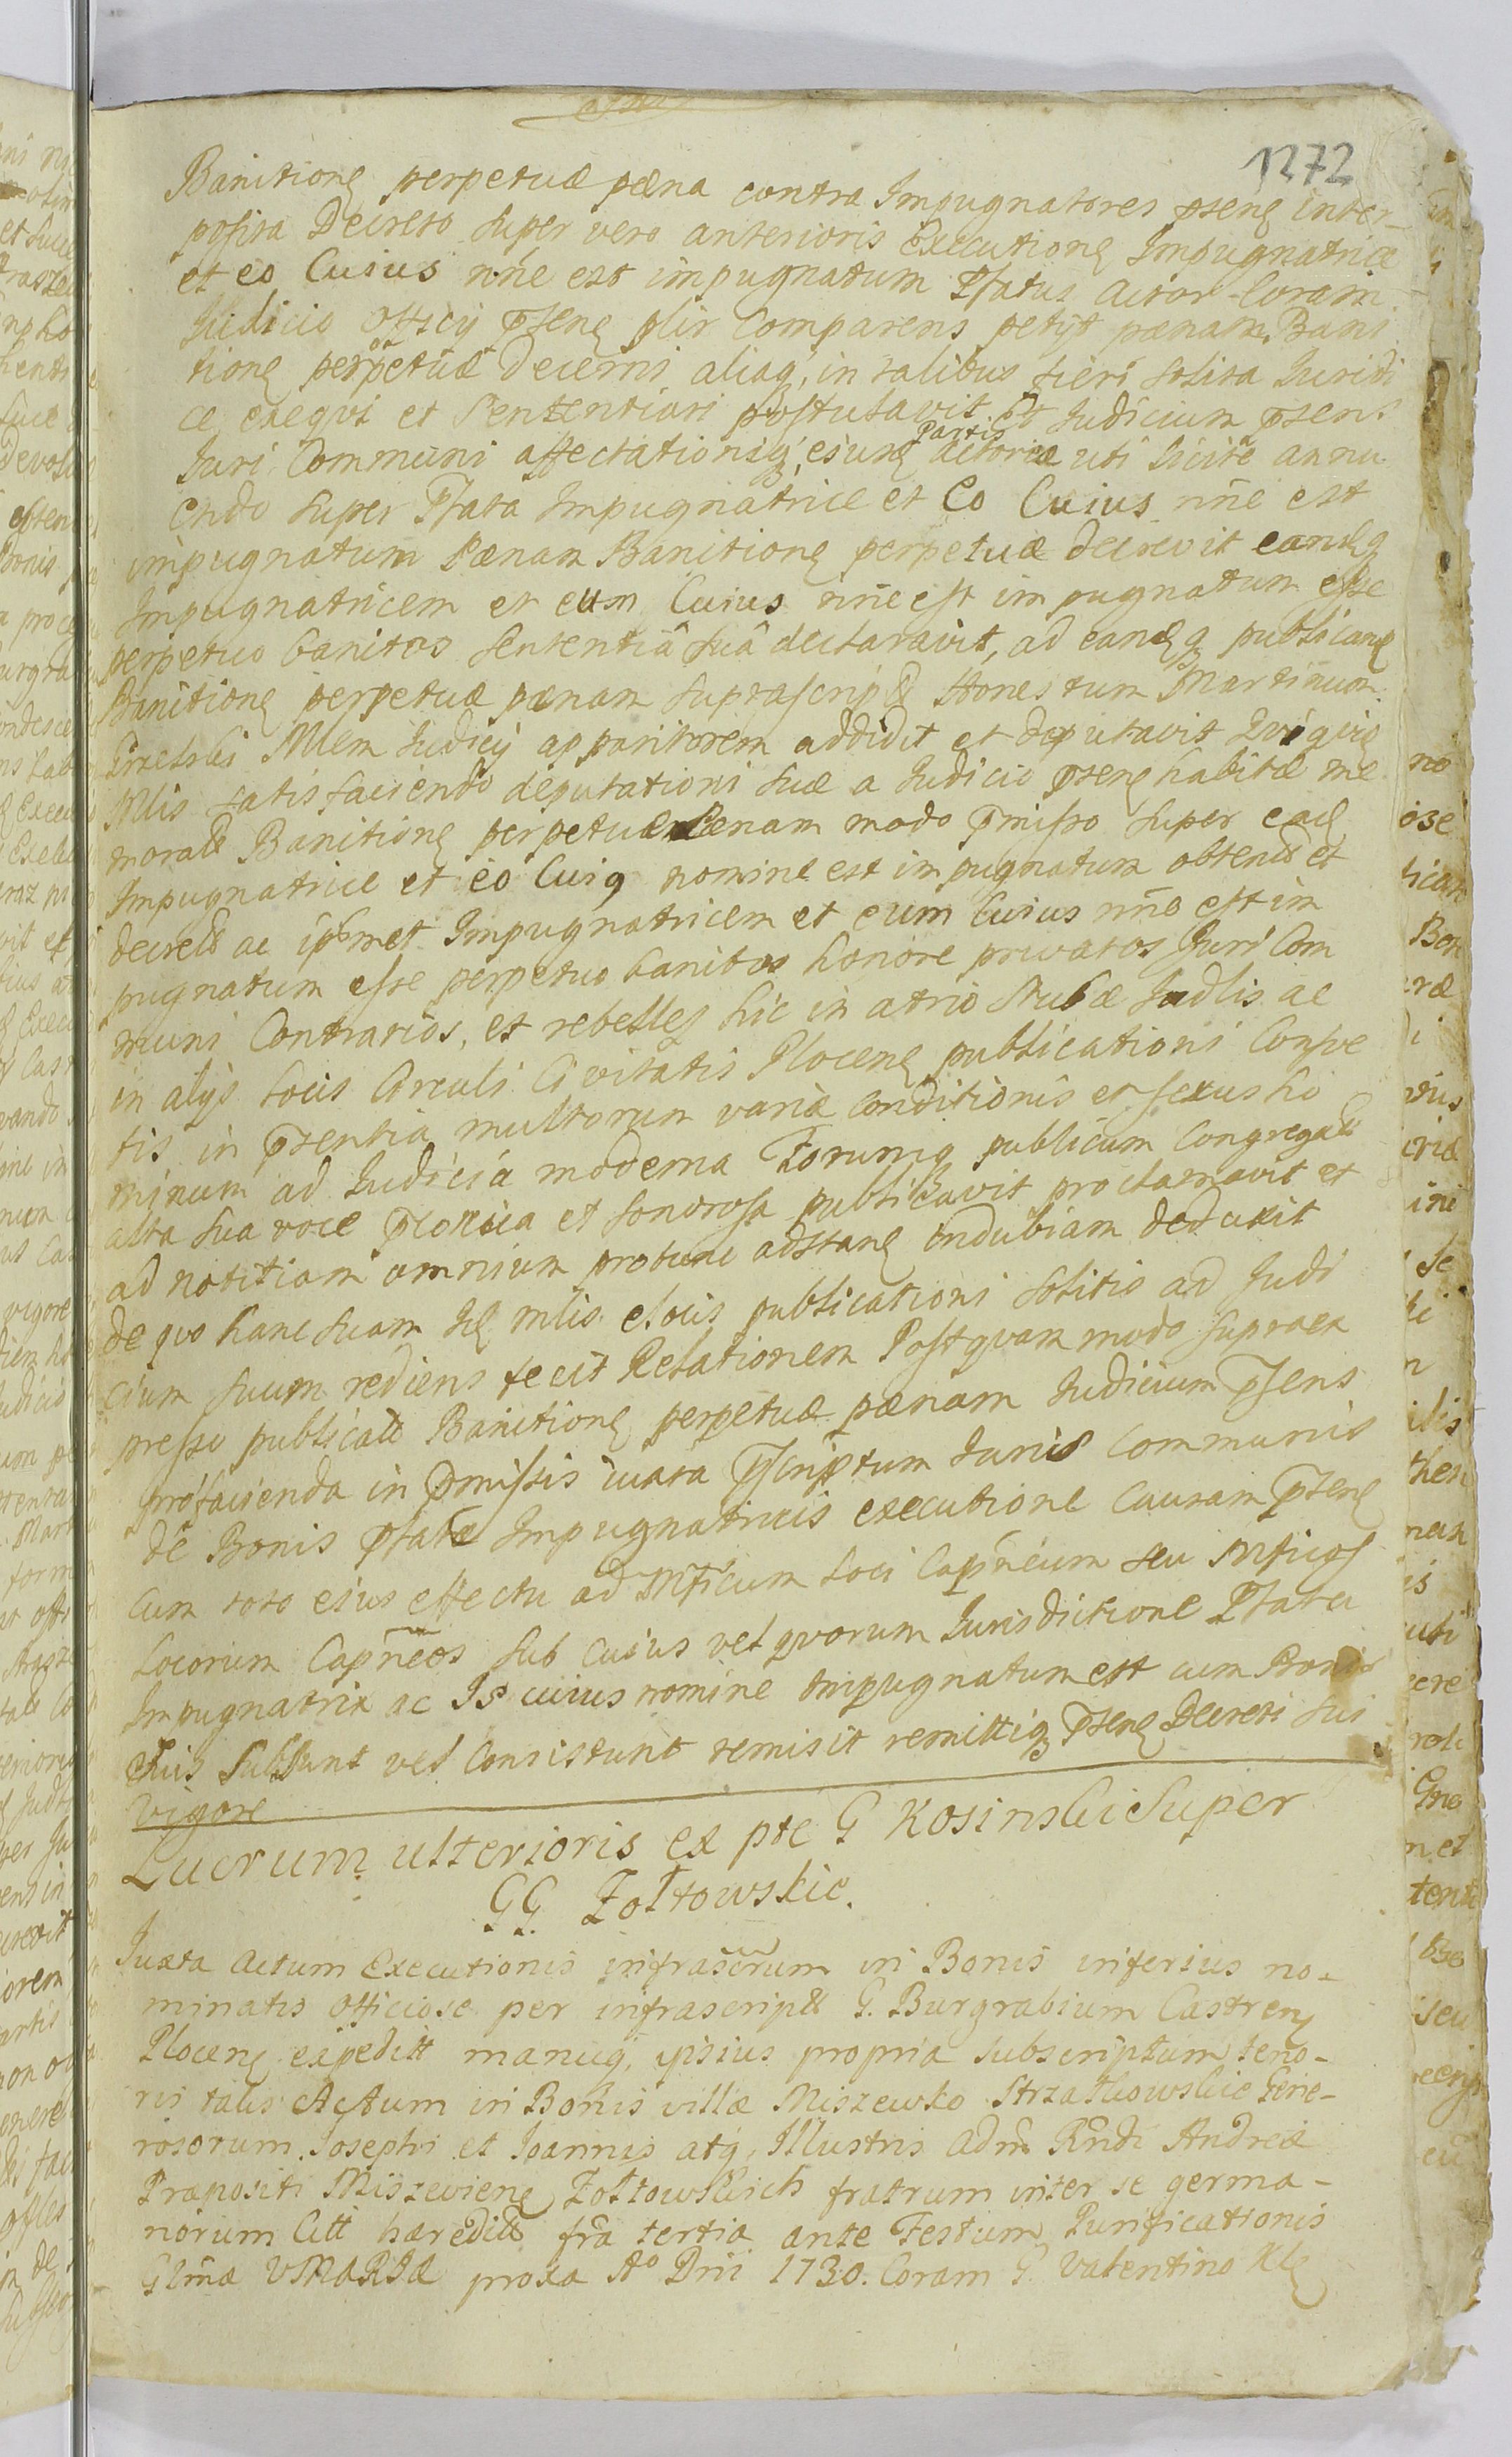 1272
Banitione perpetuæ pœna contra Impugnatores psene inter-
posita Decreto super vero anterioris Executione Impugnatrice
et eo Cuius nñe est impugnatum Pfatus Actor Coram
Iudicio Officij psene plir Comparens petijt pœnam Bani
tione perpetuæ decerni aliaq, in talibus fieri solita Iuridi
ce exeqvi et Sententiari postulavit Et Iudicium psens
Iuri Communi affectationiq, eiusd Partis actoreæ uti licitæ annu
endo super Pfata Impugnatrice et Eo Cuius nñe est
impugnatum Pœnam Banitione perpetuæ decrevit eandq
Impugnatricem et eum Cuius nñe est impugnatum esse
perpetuo banitos sententiâ suâ declaravit, ad eandq publicand
Banitione perpetuæ pœnam suprascript Honestum Martinum
Mlem Iudicij apparitorem addidit et deputavit Qvi qvid
Mlis satisfaciendo deputationi suæ a Iudicio psene habitæ me
morate Banitione perpetuæ Pœnam modo pmisso super ead
Impugnatrice et eo Cuig nomine est impugnatum obtent et
decret ac ipsmet Impugnatricem et eum Cuius nñe est im
pugnatum esse perpetuo banitos honore privatos Iuri Com
muni Contrarios, et rebelles hic in atrio Stubæ Iudlis ac
in alijs locis Circuli Civitatis Plocene publicationi Consve
tis in psentia multorum variæ Conditionis et sexus ho
minum ad Iudicia moderna Forumq publicum Congregat
alta sua voce et sonorosa publicavit proclamavit et
ad notitiam omnium protunc adstane indubiam deduxit
de qvo hanc suam Id mlis e locis publicationi solitis ad Iudi
cium suum rediens fecit Relationem Postqvam modo supraex
presso publicate Banitione perpetuæ pœnam Iudicium Psens
pro facienda in pmissis iuxta Pscriptum Iuris Communis
de Bonis pfatæ Impugnatricis executione Causam Psene
cum toto eius effectu ad Mficum loci Capneum seu Mficos
locorum Capneos sub cuius vel qvorum Iurisdictione Pfata
Impugnatrix ac Is cuius nomine impugnatum est cum Bonis
suis subsunt vel Consistunt remisit remittiq psene Decreti sui
vigore
Lucrum ulterioris ex pte G Kosinski Super
GG. Zołtowskie.
Iuxta Actum Executionis infrascrum in Bonis inferius no-
minatis Officiose per infrascript G. Burgrabium Castren
Plocene expedit manuq, ipsius propria subscriptum teno-
ris talis Actum in Bonis villæ Miszewko Strzałkowskie Gene-
rosorum Iosephi et Ioannis atq, Illustris adm Rndi Andreæ
Præpositi Miszeviene Zołtowskich fratrum inter se germa-
norum Citt hæredit fra tertia ante Festum Purificationis
Glmæ VMARIÆ proxa Ao Dni 1730. Coram G. Valentino Kle